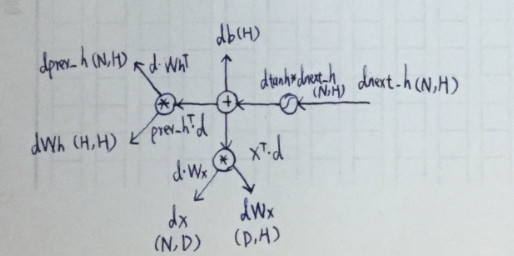 db(H)
dprev_h (N,H)
d·Whᵀ
dtanh*dnext_h
(N,H)
dnext_h (N,H)
*
+
dWh (H,H)
prev_hᵀ·d
*
xᵀ·d
d·Wx
dx
(N,D)
dWx
(D,H)